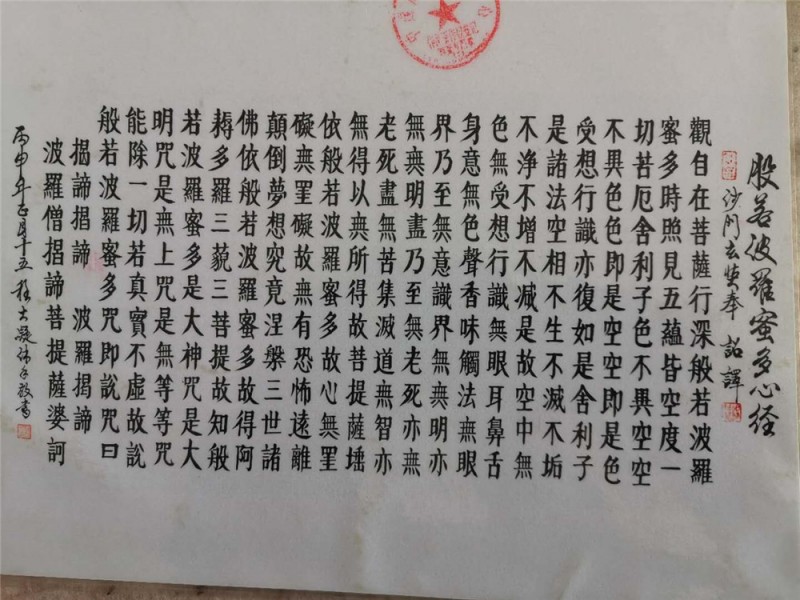 般若波羅蜜多心经
沙門玄奘奉 詔譯
觀自在菩薩行深般若波羅
蜜多時照見五蘊皆空度一
切苦厄舍利子色不異空空
不異色色即是空空即是色
受想行識亦復如是舍利子
是諸法空相不生不滅不垢
不浄不增不减是故空中無
色無受想行識無眼耳鼻舌
身意無色聲香味觸法無眼
界乃至無意識界無無明亦
無無明盡乃至無老死亦無
老死盡無苦集滅道無智亦
無得以無所得故菩提薩埵
依般若波羅蜜多故心無罣
礙無罣礙故無有恐怖遠離
顛倒夢想究竟涅槃三世諸
佛依般若波羅蜜多故得阿
耨多羅三藐三菩提故知般
若波羅蜜多是大神咒是大
明咒是無上咒是無等等咒
能除一切苦真實不虛故説
般若波羅蜜多咒即説咒曰
揭諦揭諦 波羅揭諦
波羅僧揭諦菩提薩婆訶
丙申年正月十五 敬書